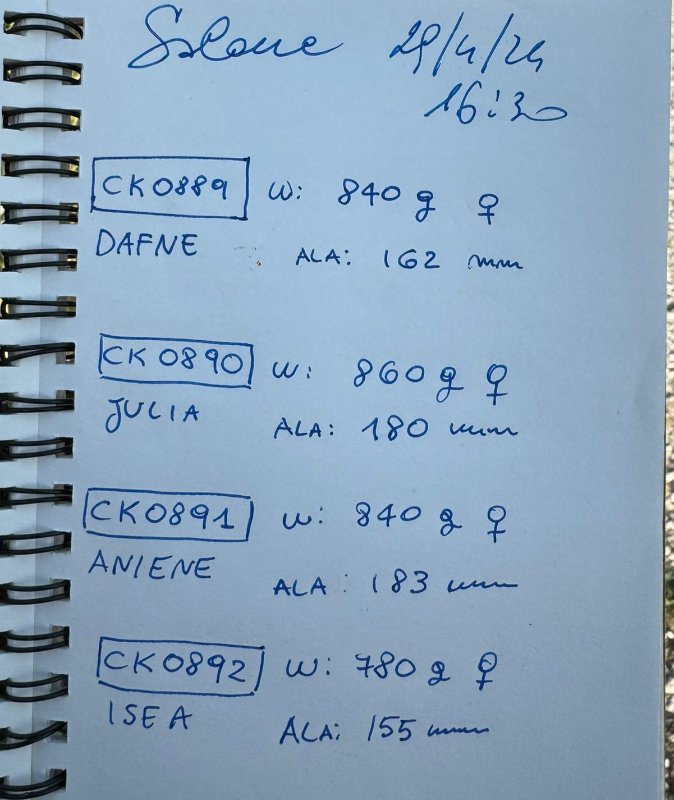 29/4/24
16:30
CK0889 W: 840 g ♀
DAFNE ALA: 162 mm
CK0890 W: 860 g ♀
JULIA ALA: 180 mm
CK0891 W: 840 g ♀
ANIENE ALA: 183 mm
CK0892 W: 780 g ♀
ISEA ALA: 155 mm